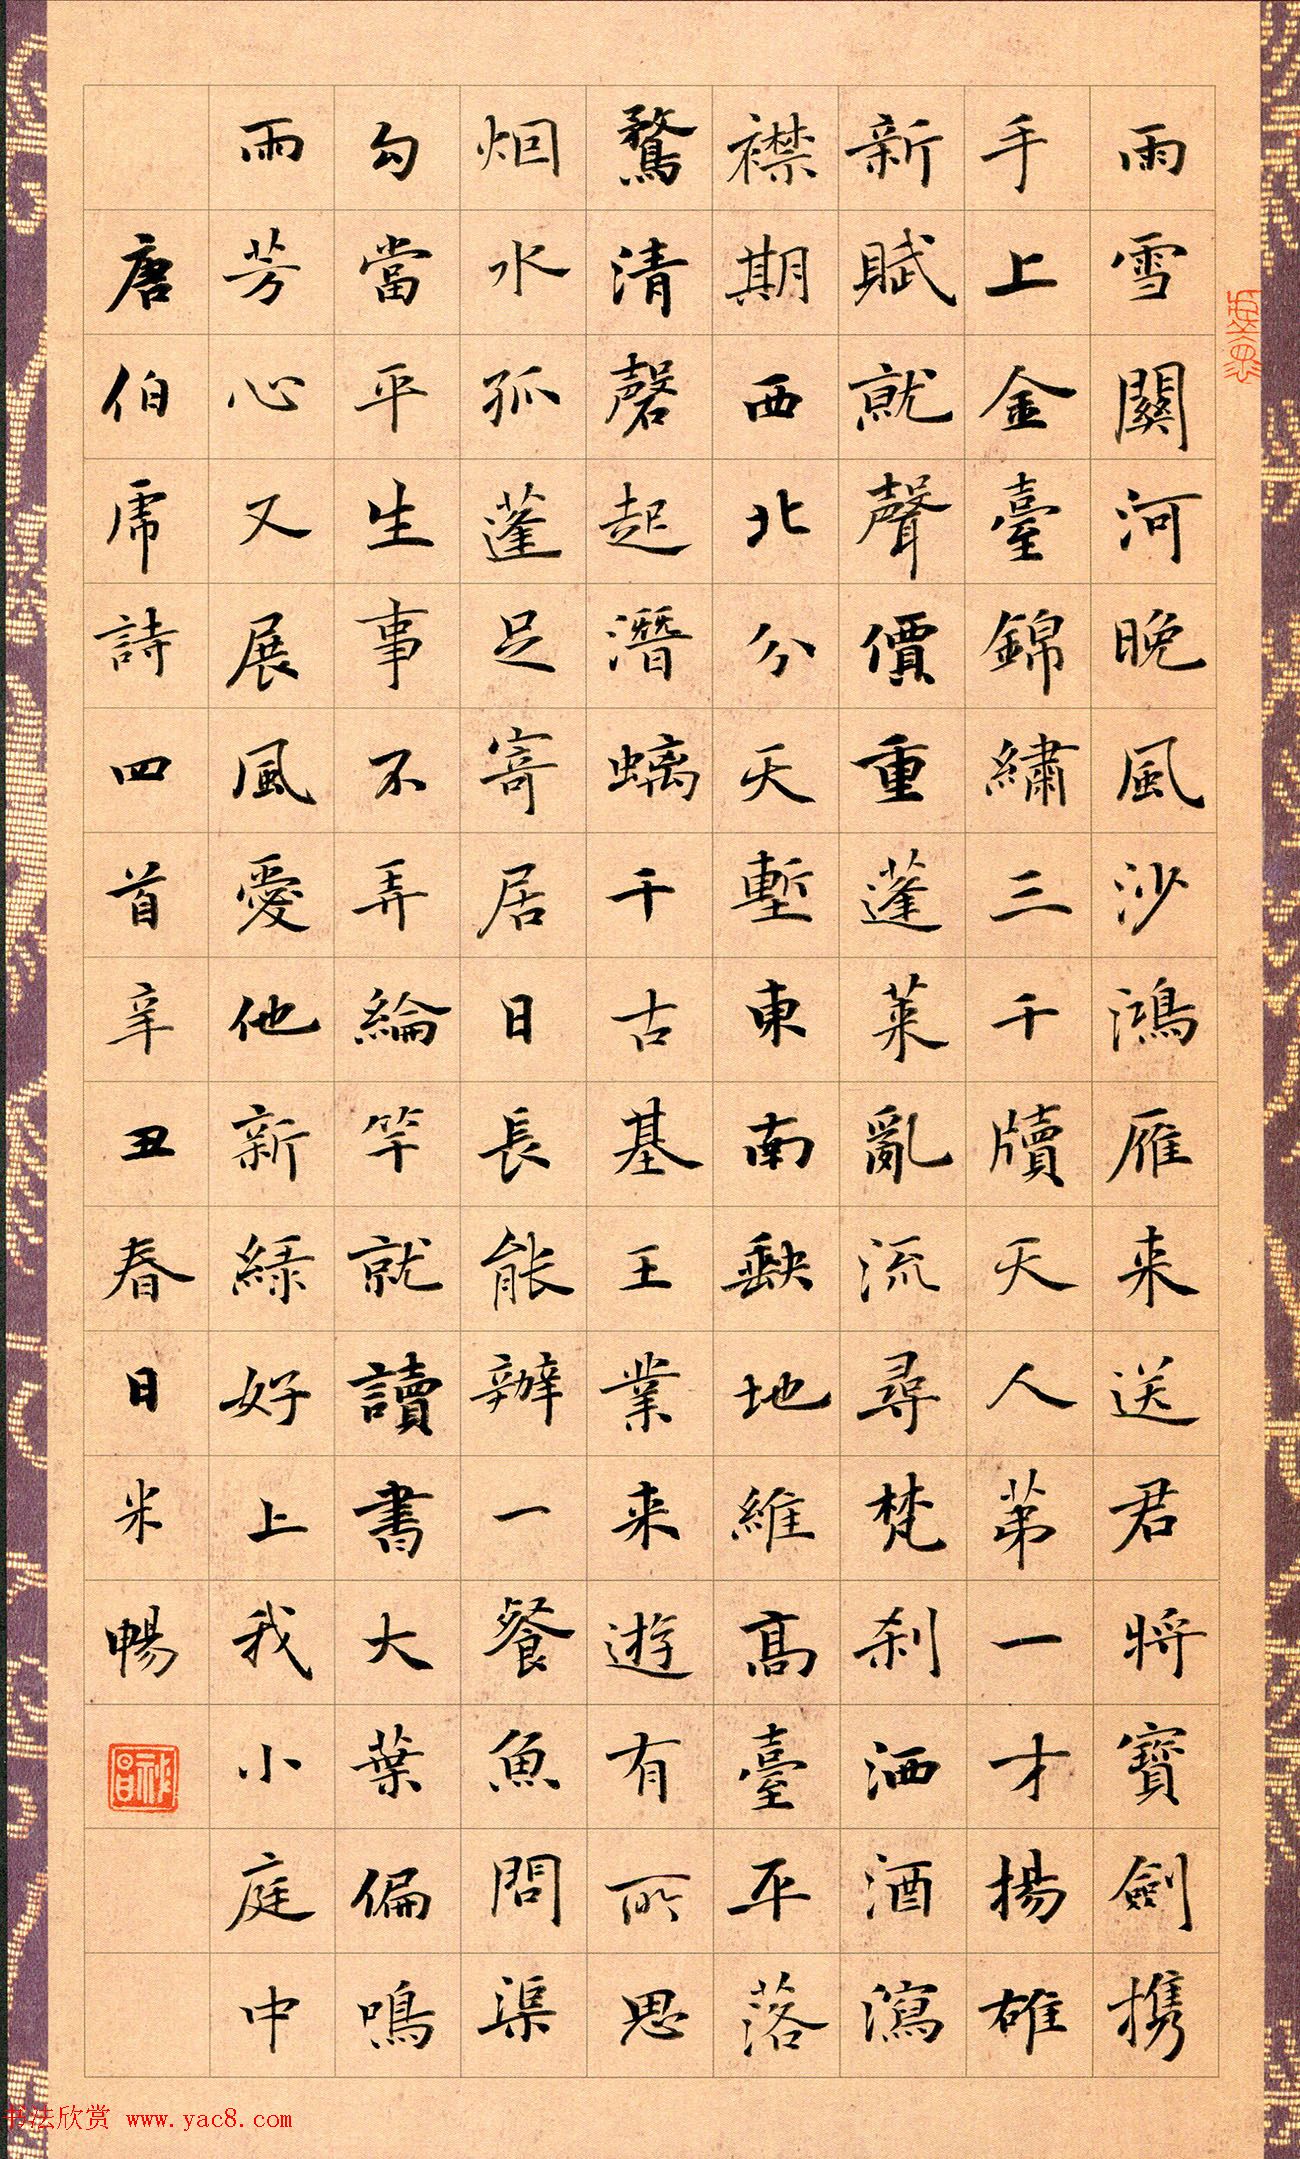 雨雪關河晚風沙鴻雁来送君将寶劍携
手上金臺錦繡三千牘天人苐一才揚雄
新賦就聲價重蓬萊亂流尋梵刹洒酒瀉
襟期西北分天塹東南缺地維高臺平落
鶩清磬起潛螭千古基王業来遊有所思
烟水孤蓬足寄居日長能辦一餐魚問渠
勾當平生事不弄綸竿就讀書大葉偏鳴
雨芳心又展風愛他新綠好上我小庭中
唐伯虎詩四首辛丑春日米暢
书法欣赏 www.yac8.com